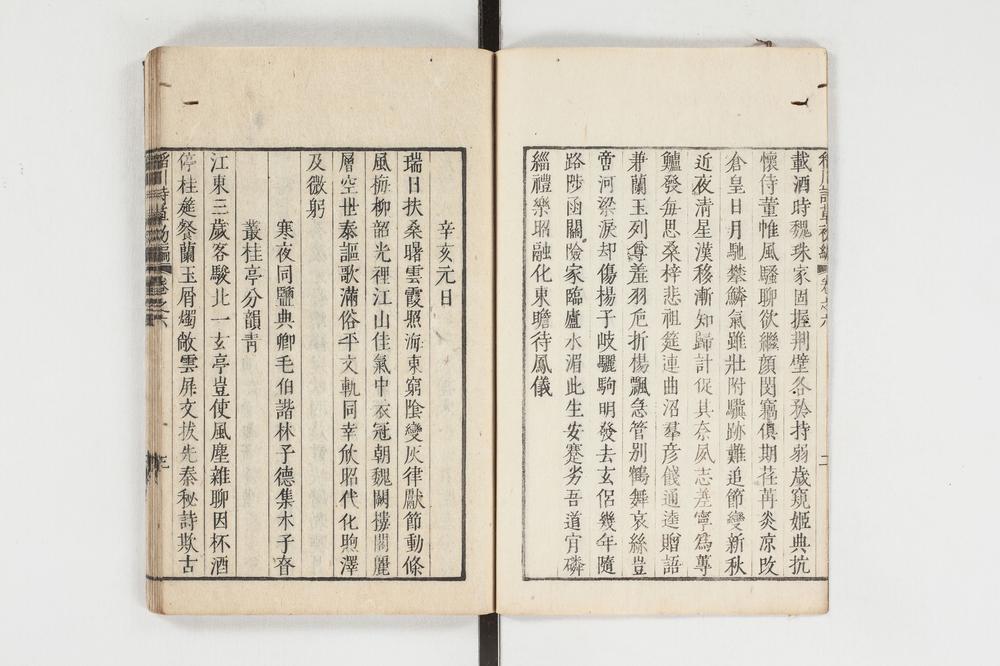 載酒時魏珠家固握荆璧各矜持弱歲窺姬典抗
懷侍董帷風騷聊欲繼顔閔竊俱期荏苒炎凉改
倉皇日月馳攀鱗氣雖壯附驥跡難追節變新秋
近夜淸星漢移漸知歸計促其奈夙志差寧爲蓴
鱸發每思桑梓悲祖筵連曲沼羣彦餞通逵贈語
兼蘭玉列尊羞羽巵折楊飄急管别鶴舞哀絲豈
啻河梁淚却傷楊子岐驪駒明發去玄侶幾年隨
路陟凾關險家臨廬水湄此生安蹇劣吾道宵磷
緇禮樂昭融化東瞻待鳳儀
辛亥元日
瑞日扶桑曙雲霞照海東窮陰變灰律獻節動條
風梅柳韶光裡江山佳氣中衣冠朝魏闕樓閣麗
層空世泰謳歌滿俗平文軌同幸欣昭代化煦澤
及微躬
寒夜同鹽典卿毛伯諧林子德集木子春
叢桂亭分韻靑
江東三歲客駿北一玄亭豈使風塵雜聊因杯酒
停桂薤餐蘭玉屑燭敵雲屏文拔先秦秘詩欺古
詩草初編 卷之六